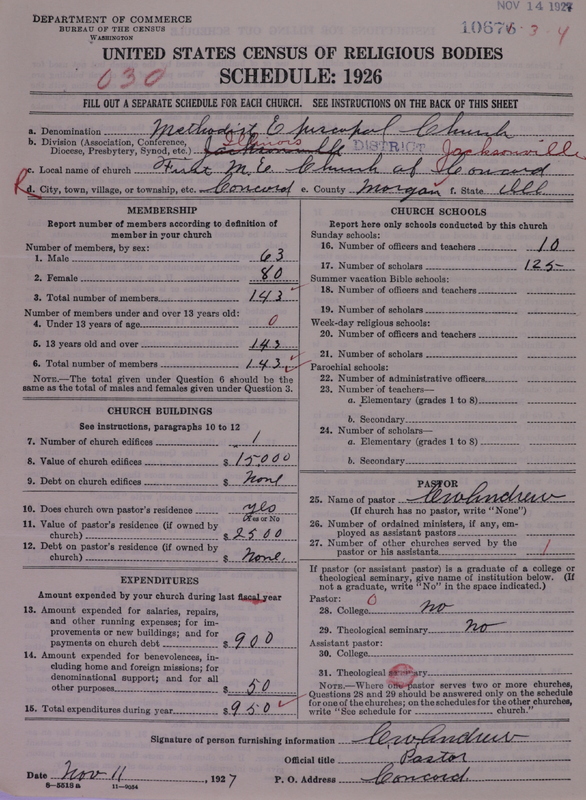 NOV 14 1927
DEPARTMENT OF COMMERCE
BUREAU OF THE CENSUS
WASHINGTON
10676 - 3 - 4
UNITED STATES CENSUS OF RELIGIOUS BODIES
030
SCHEDULE: 1926
FILL OUT A SEPARATE SCHEDULE FOR EACH CHURCH. SEE INSTRUCTIONS ON THE BACK OF THIS SHEET
a. Denomination Methodist Episcopal Church
b. Division (Association, Conference, Diocese, Presbytery, Synod, etc.) Jacksonville Illinois DISTRICT Jacksonville
c. Local name of church First M.E. Church of Concord
R d. City, town, village, or township, etc. Concord e. County Morgan f. State Ill
MEMBERSHIP
Report number of members according to definition of
member in your church
Number of members, by sex:
1. Male 63
2. Female 80
3. Total number of members 143
Number of members under and over 13 years old:
4. Under 13 years of age 0
5. 13 years old and over 143
6. Total number of members 143
NOTE.—The total given under Question 6 should be
the same as the total of males and females given under Question 3.
CHURCH BUILDINGS
See instructions, paragraphs 10 to 12
7. Number of church edifices 1
8. Value of church edifices $ 15000
9. Debt on church edifices $ None
10. Does church own pastor's residence? yes
(Yes or No)
11. Value of pastor's residence (if owned by
church) $ 2500
12. Debt on pastor's residence (if owned by
church) $ None.
EXPENDITURES
Amount expended by your church during last fiscal year
13. Amount expended for salaries, repairs,
and other running expenses; for im-
provements or new buildings; and for
payments on church debt $ 900
14. Amount expended for benevolences, in-
cluding home and foreign missions; for
denominational support; and for all
other purposes $ 50
15. Total expenditures during year $ 950
CHURCH SCHOOLS
Report here only schools conducted by this church
Sunday schools:
16. Number of officers and teachers 10
17. Number of scholars 125
Summer vacation Bible schools:
18. Number of officers and teachers
19. Number of scholars
Week-day religious schools:
20. Number of officers and teachers
21. Number of scholars
Parochial schools:
22. Number of administrative officers
23. Number of teachers—
a. Elementary (grades 1 to 8)
b. Secondary
24. Number of scholars—
a. Elementary (grades 1 to 8)
b. Secondary
PASTOR
25. Name of pastor C W Andrew
(If church has no pastor, write "None")
26. Number of ordained ministers, if any, em-
ployed as assistant pastors
27. Number of other churches served by the
pastor or his assistants 1
If pastor (or assistant pastor) is a graduate of a college or
theological seminary, give name of institution below. (If
not a graduate, write "No" in the space indicated.)
Pastor: 0
28. College No
29. Theological seminary No
Assistant pastor:
30. College
31. Theological seminary
NOTE.—Where one pastor serves two or more churches,
Questions 28 and 29 should be answered only on the schedule
for one of the churches; on the schedules for the other churches,
write "See schedule for church."
Signature of person furnishing information C W Andrew
Official title Pastor
Date Nov 11, 1927 P. O. Address Concord.
8—5518 a 11—9054